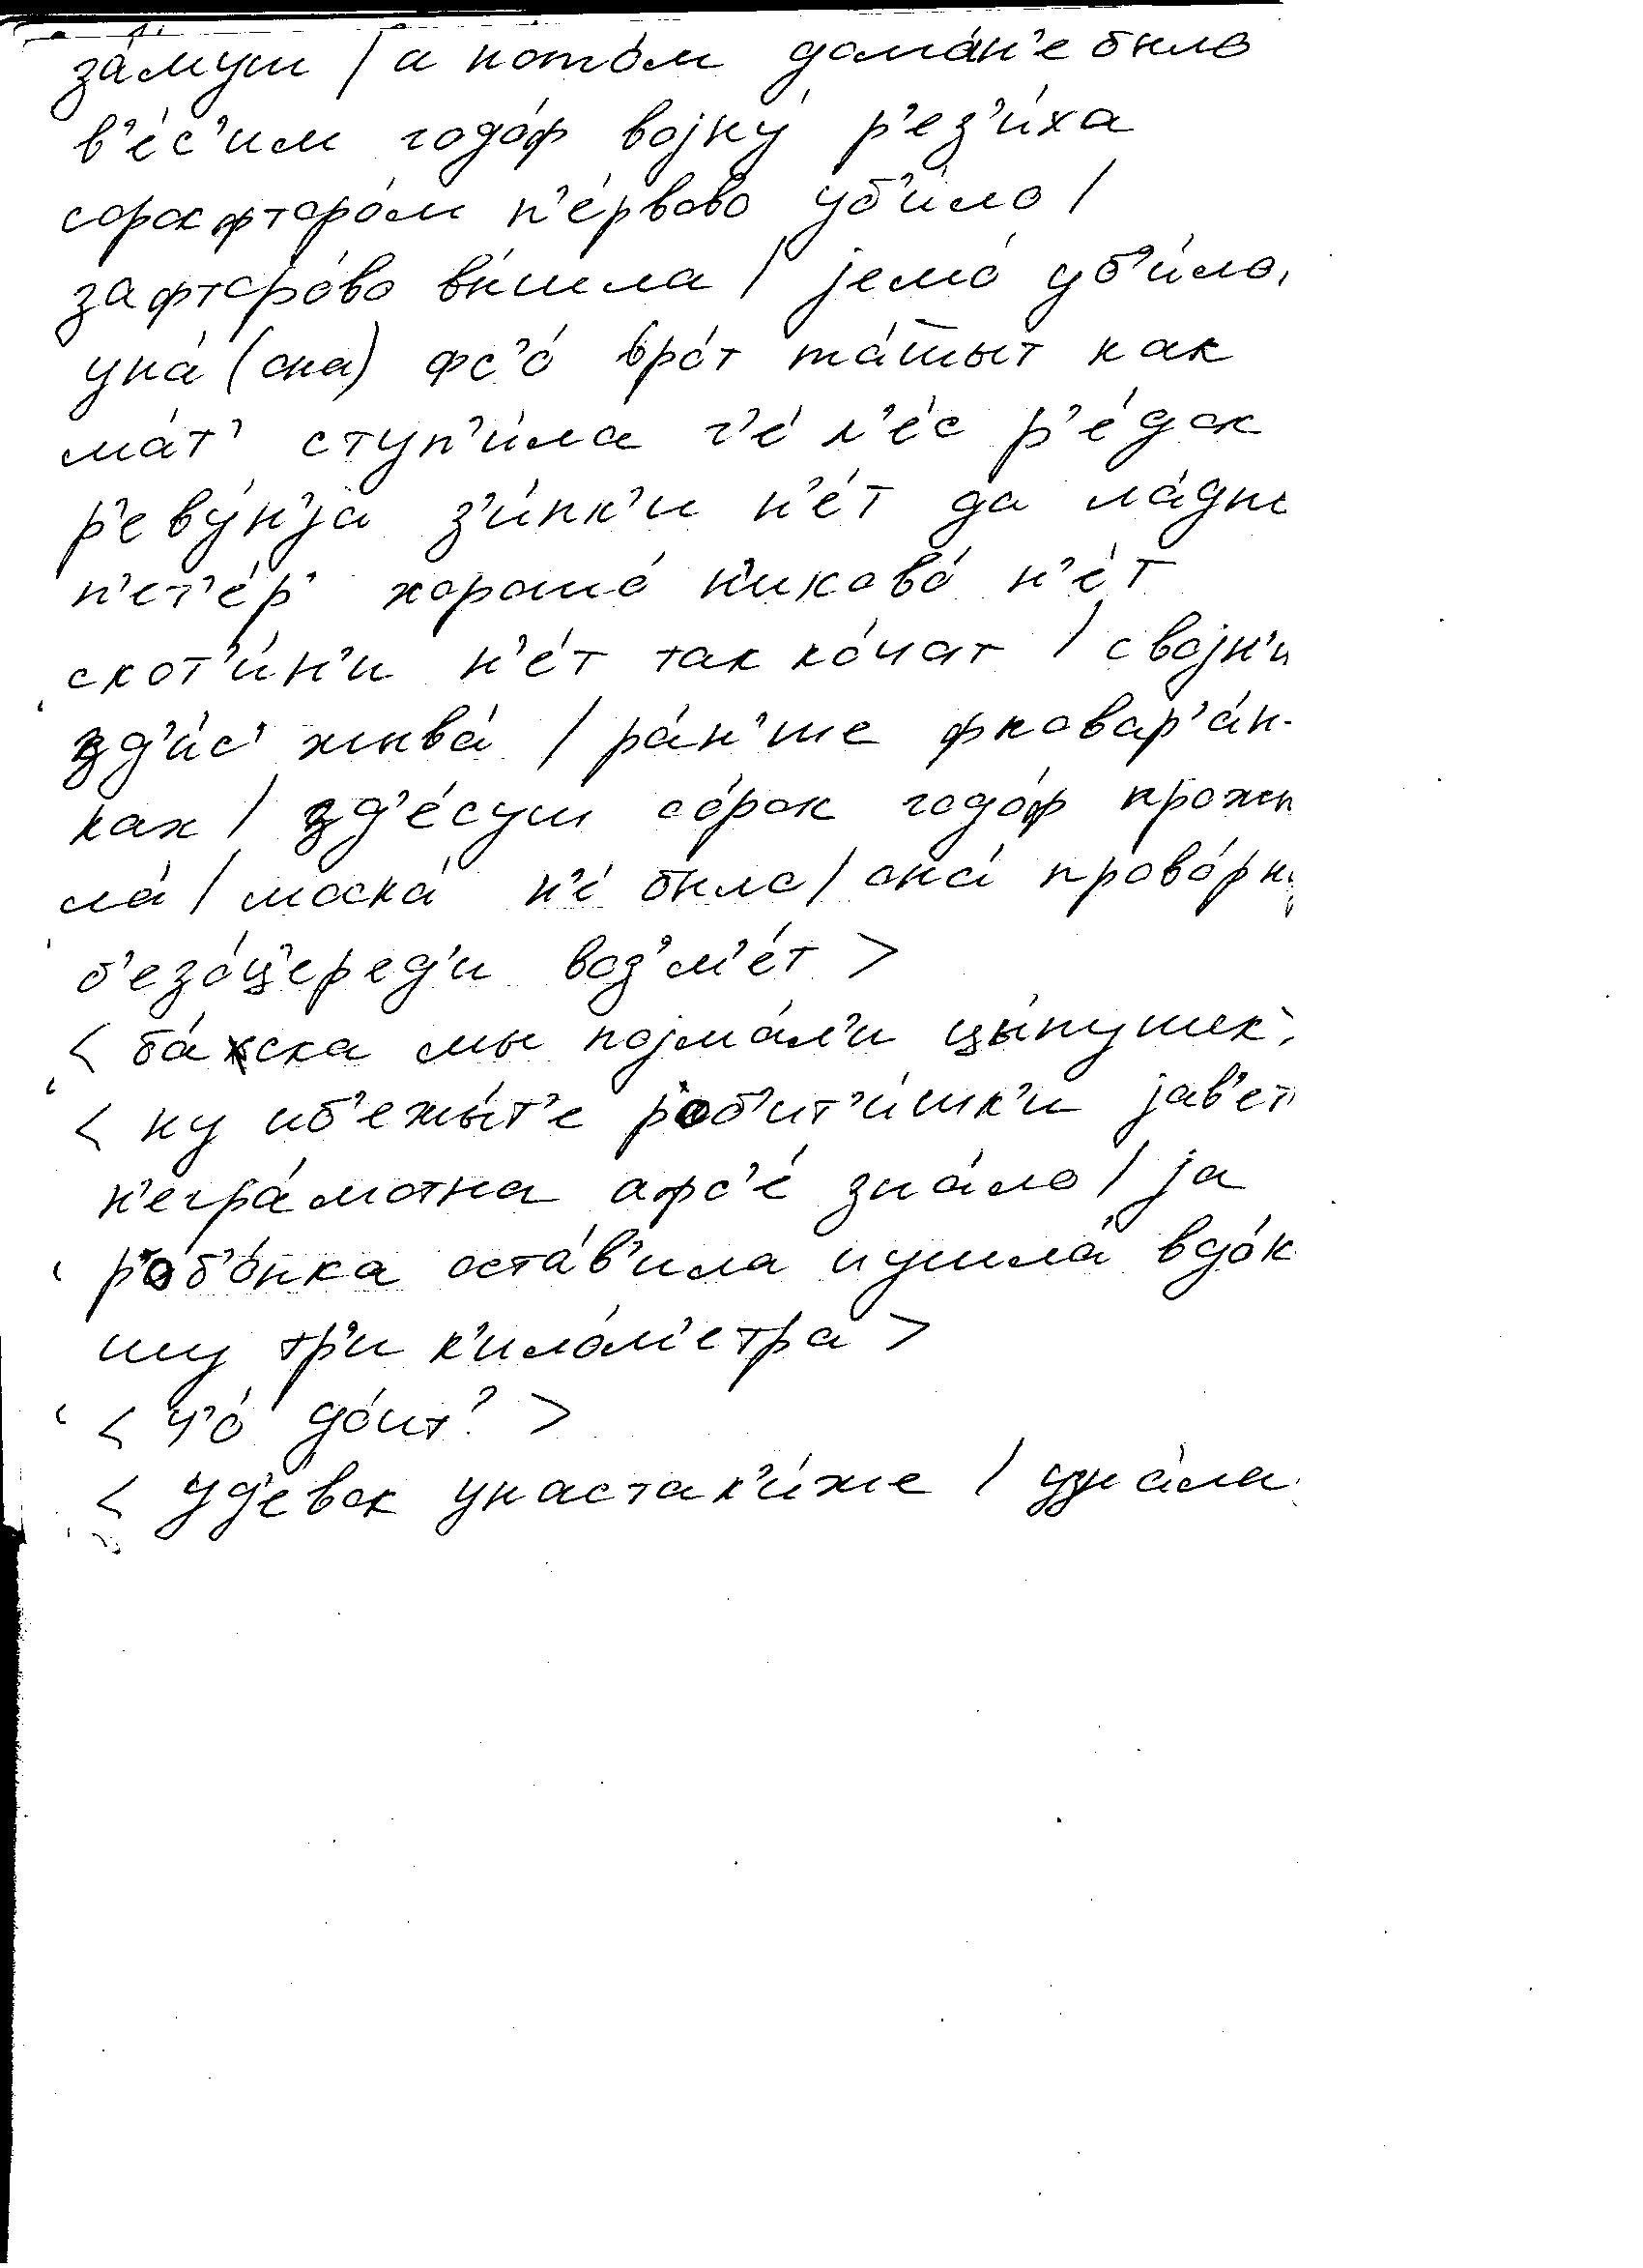 за́муш / а пото́м дома́н'е было
в'е́с'им годо́ф војну́ р'ез'и́ха
сорокфторо́м п'е́рвово уб'и́ло /
зафторо́во вы́шла / јемо́ уб'и́ло,
уна́ (она) фс'о́ вро́т та́шыт как
ма́т' ступ'и́ла г'е́ л'е́с р'е́док
р'еву́н'ја з'и́нк'и н'е́т да ла́дн
т'еп'е́р' хорошо́ н'иково́ н'е́т
скот'и́н'и н'е́т так ко́чат / својн'и
зд'и́с' жыва́ / ра́н'ше фковар'а́н-
ках / зд'е́суш со́рок годо́ф прожы
ла́ / моска́ н'е́ было / она́ прово́рн
б'езо́ц'еред'и воз'м'е́т >
< ба́ска мы појма́л'и цы́пушек >
< ну иб'ежы́т'е роб'ит'и́шк'и јав'ет'
н'егра́мотна афс'е́ зна́ло / ја
р'об'о́нка оста́в'ила иушла́ вдо́к
шу тр'и к'ило́м'етра >
< ч'о́ до́ит? >
< уд'евок унастак'и́же / узна́ла